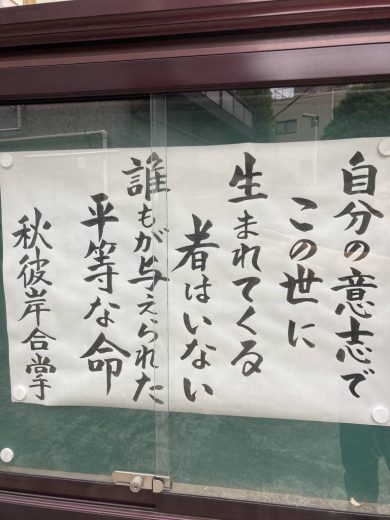 自分の意志で
この世に
生まれてくる
者はいない
誰もが与えられた
平等な命
秋彼岸合掌